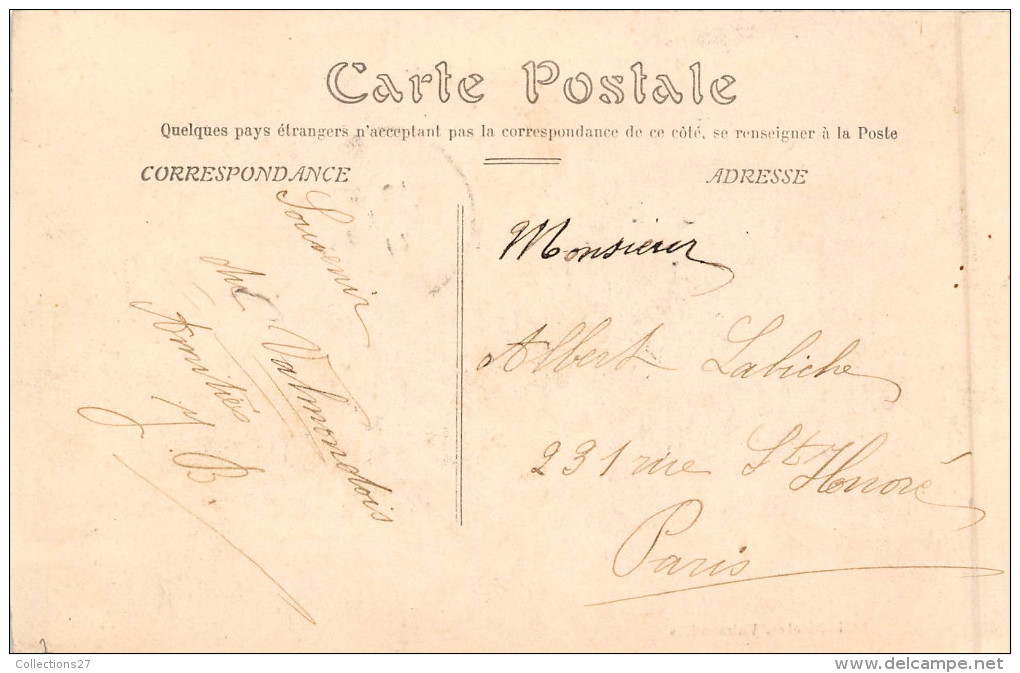 Carte Postale
Quelques pays étrangers n'acceptant pas la correspondance de ce côté, se renseigner à la Poste
CORRESPONDANCE
ADRESSE
Souvenir
de Valmondois
Amitiés
J. B.
Monsieur
Albert Labiche
231 rue St Honoré
Paris
Collections27
www.delcampe.net